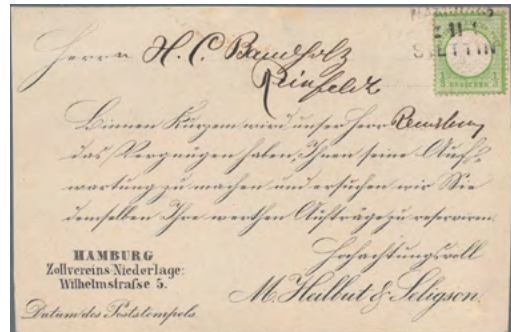 HAMBURG
II
STETTIN
1/3 GROSCHEN 1/3
Herrn H. C. Bandholz
Reinfeldt
Binnen Kurzem wird unser Herr Rensburg
das Vergnügen haben, Ihnen seine Auf-
wartung zu machen und ersuchen wir Sie
demselben Ihre werthen Aufträge zu reserviren.
Hochachtungsvoll
M. Heilbut & Seligson.
HAMBURG
Zollvereins-Niederlage:
Wilhelmstrafse 5.
Datum des Poststempels.